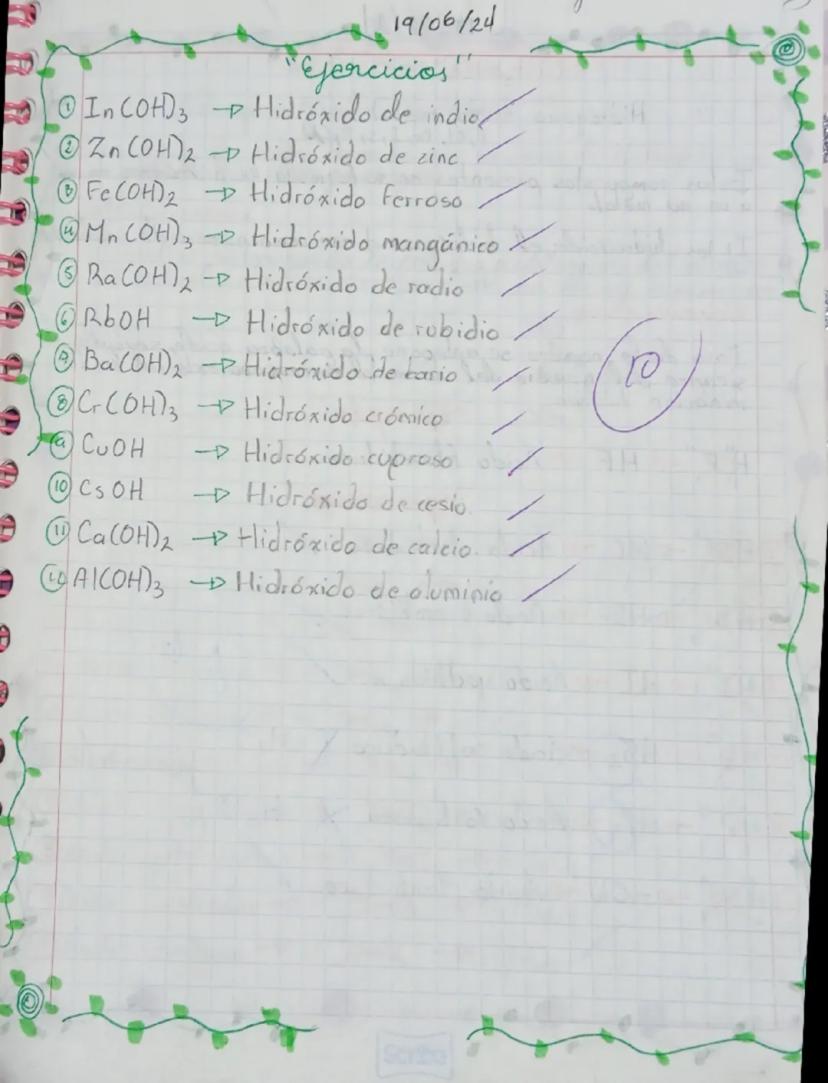 19/06/24
"Ejercicios"
① In(OH)3 → Hidróxido de indio
② Zn(OH)2 → Hidróxido de zinc
③ Fe(OH)2 → Hidróxido ferroso
④ Mn(OH)3 → Hidróxido mangánico
⑤ Ra(OH)2 → Hidróxido de radio
⑥ RbOH → Hidróxido de rubidio
⑦ Ba(OH)2 → Hidróxido de bario
⑧ Cr(OH)3 → Hidróxido crómico
⑨ CuOH → Hidróxido cuproso
⑩ CsOH → Hidróxido de cesio
⑪ Ca(OH)2 → Hidróxido de calcio.
⑫ Al(OH)3 → Hidróxido de aluminio
10
Scribe